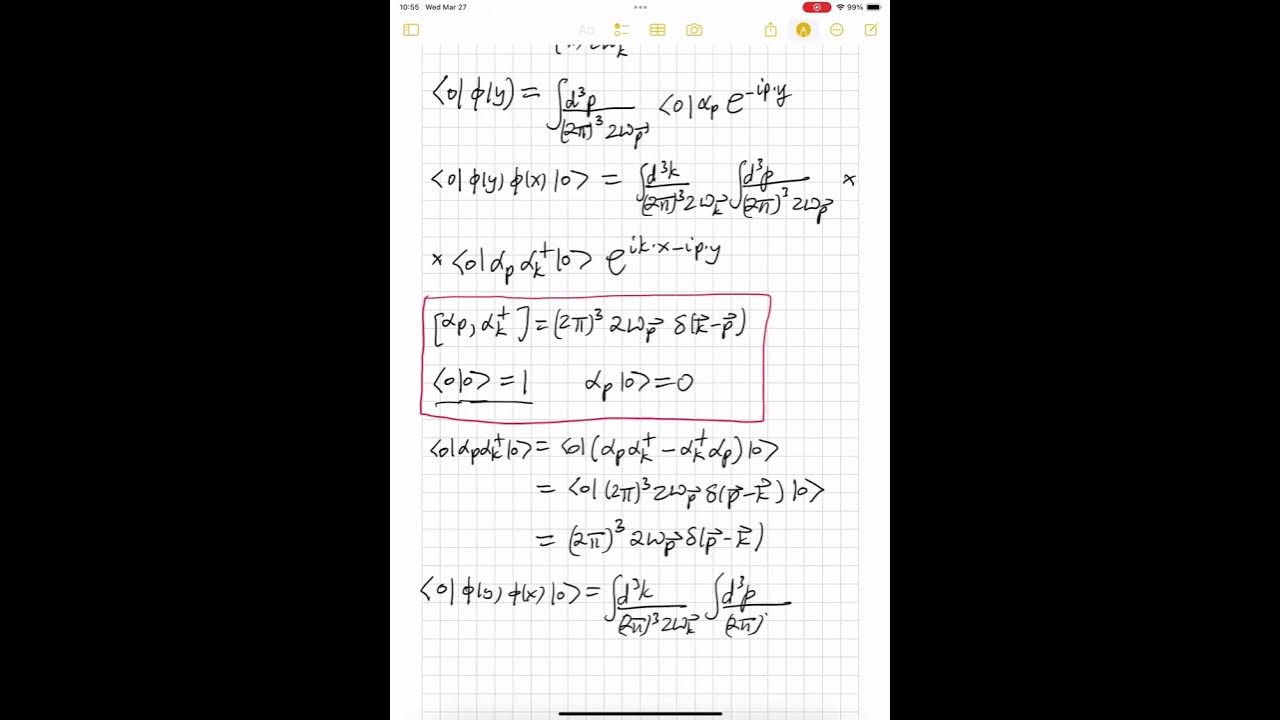 10:55 Wed Mar 27
99%
Aa
(π) 2ω_k
<0|ϕ(y) = ∫ d³p / (2π)³ 2ω_p⃗ <0|α_p e^{-ip·y}
<0|ϕ(y) ϕ(x)|0> = ∫ d³k / (2π)³ 2ω_k⃗ ∫ d³p / (2π)³ 2ω_p⃗ ×
× <0|α_p α_k^†|0> e^{ik·x-ip·y}
[α_p, α_k^†] = (2π)³ 2ω_p⃗ δ(k⃗-p⃗)
<0|0> = 1 α_p|0> = 0
<0|α_pα_k^†|0> = <0|(α_pα_k^† - α_k^†α_p)|0>
= <0|(2π)³ 2ω_p⃗ δ(p⃗-k⃗)|0>
= (2π)³ 2ω_p⃗ δ(p⃗-k⃗)
<0|ϕ(y) ϕ(x)|0> = ∫ d³k / (2π)³ 2ω_k⃗ ∫ d³p / (2π)